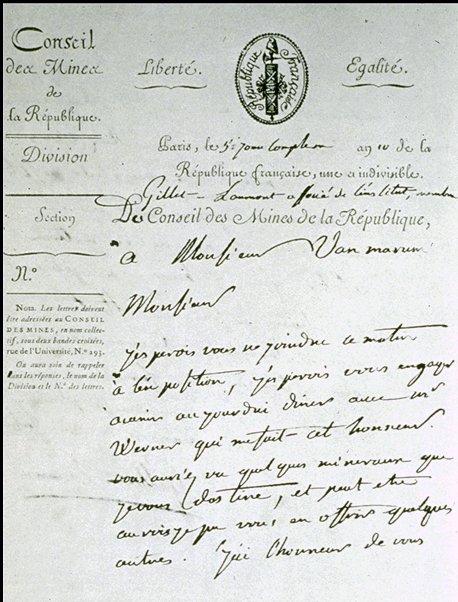 Conseil
des Mines
de
la République.
Division
Section
N.°
NOTA. Les lettres doivent
être adressées au CONSEIL
DES MINES, en nom collec-
tif, sous deux bandes croisées,
rue de l'Université, N.° 293.
On aura soin de rappeler
dans les réponses, le nom de la
Division et le N.° des lettres.
Liberté.
République française
Egalité.
Paris, le 5e jour complem an 10 de la
République française, une et indivisible.
Gillet-Laumont associé de l'institut, membre
Du Conseil des Mines de la République,
a Monsieur Van marum
Monsieur
J'esperois vous rejoindre ce matin
à l'exposition, j'esperois vous engager
a venir aujourdui diner avec mr
Werner qui me fait cet honneur.
vous auriez vu quelques mineraux que
je vous destine, et peut etre
aurois je pu vous en offrir quelques
autres. J'ai l'honneur de vous